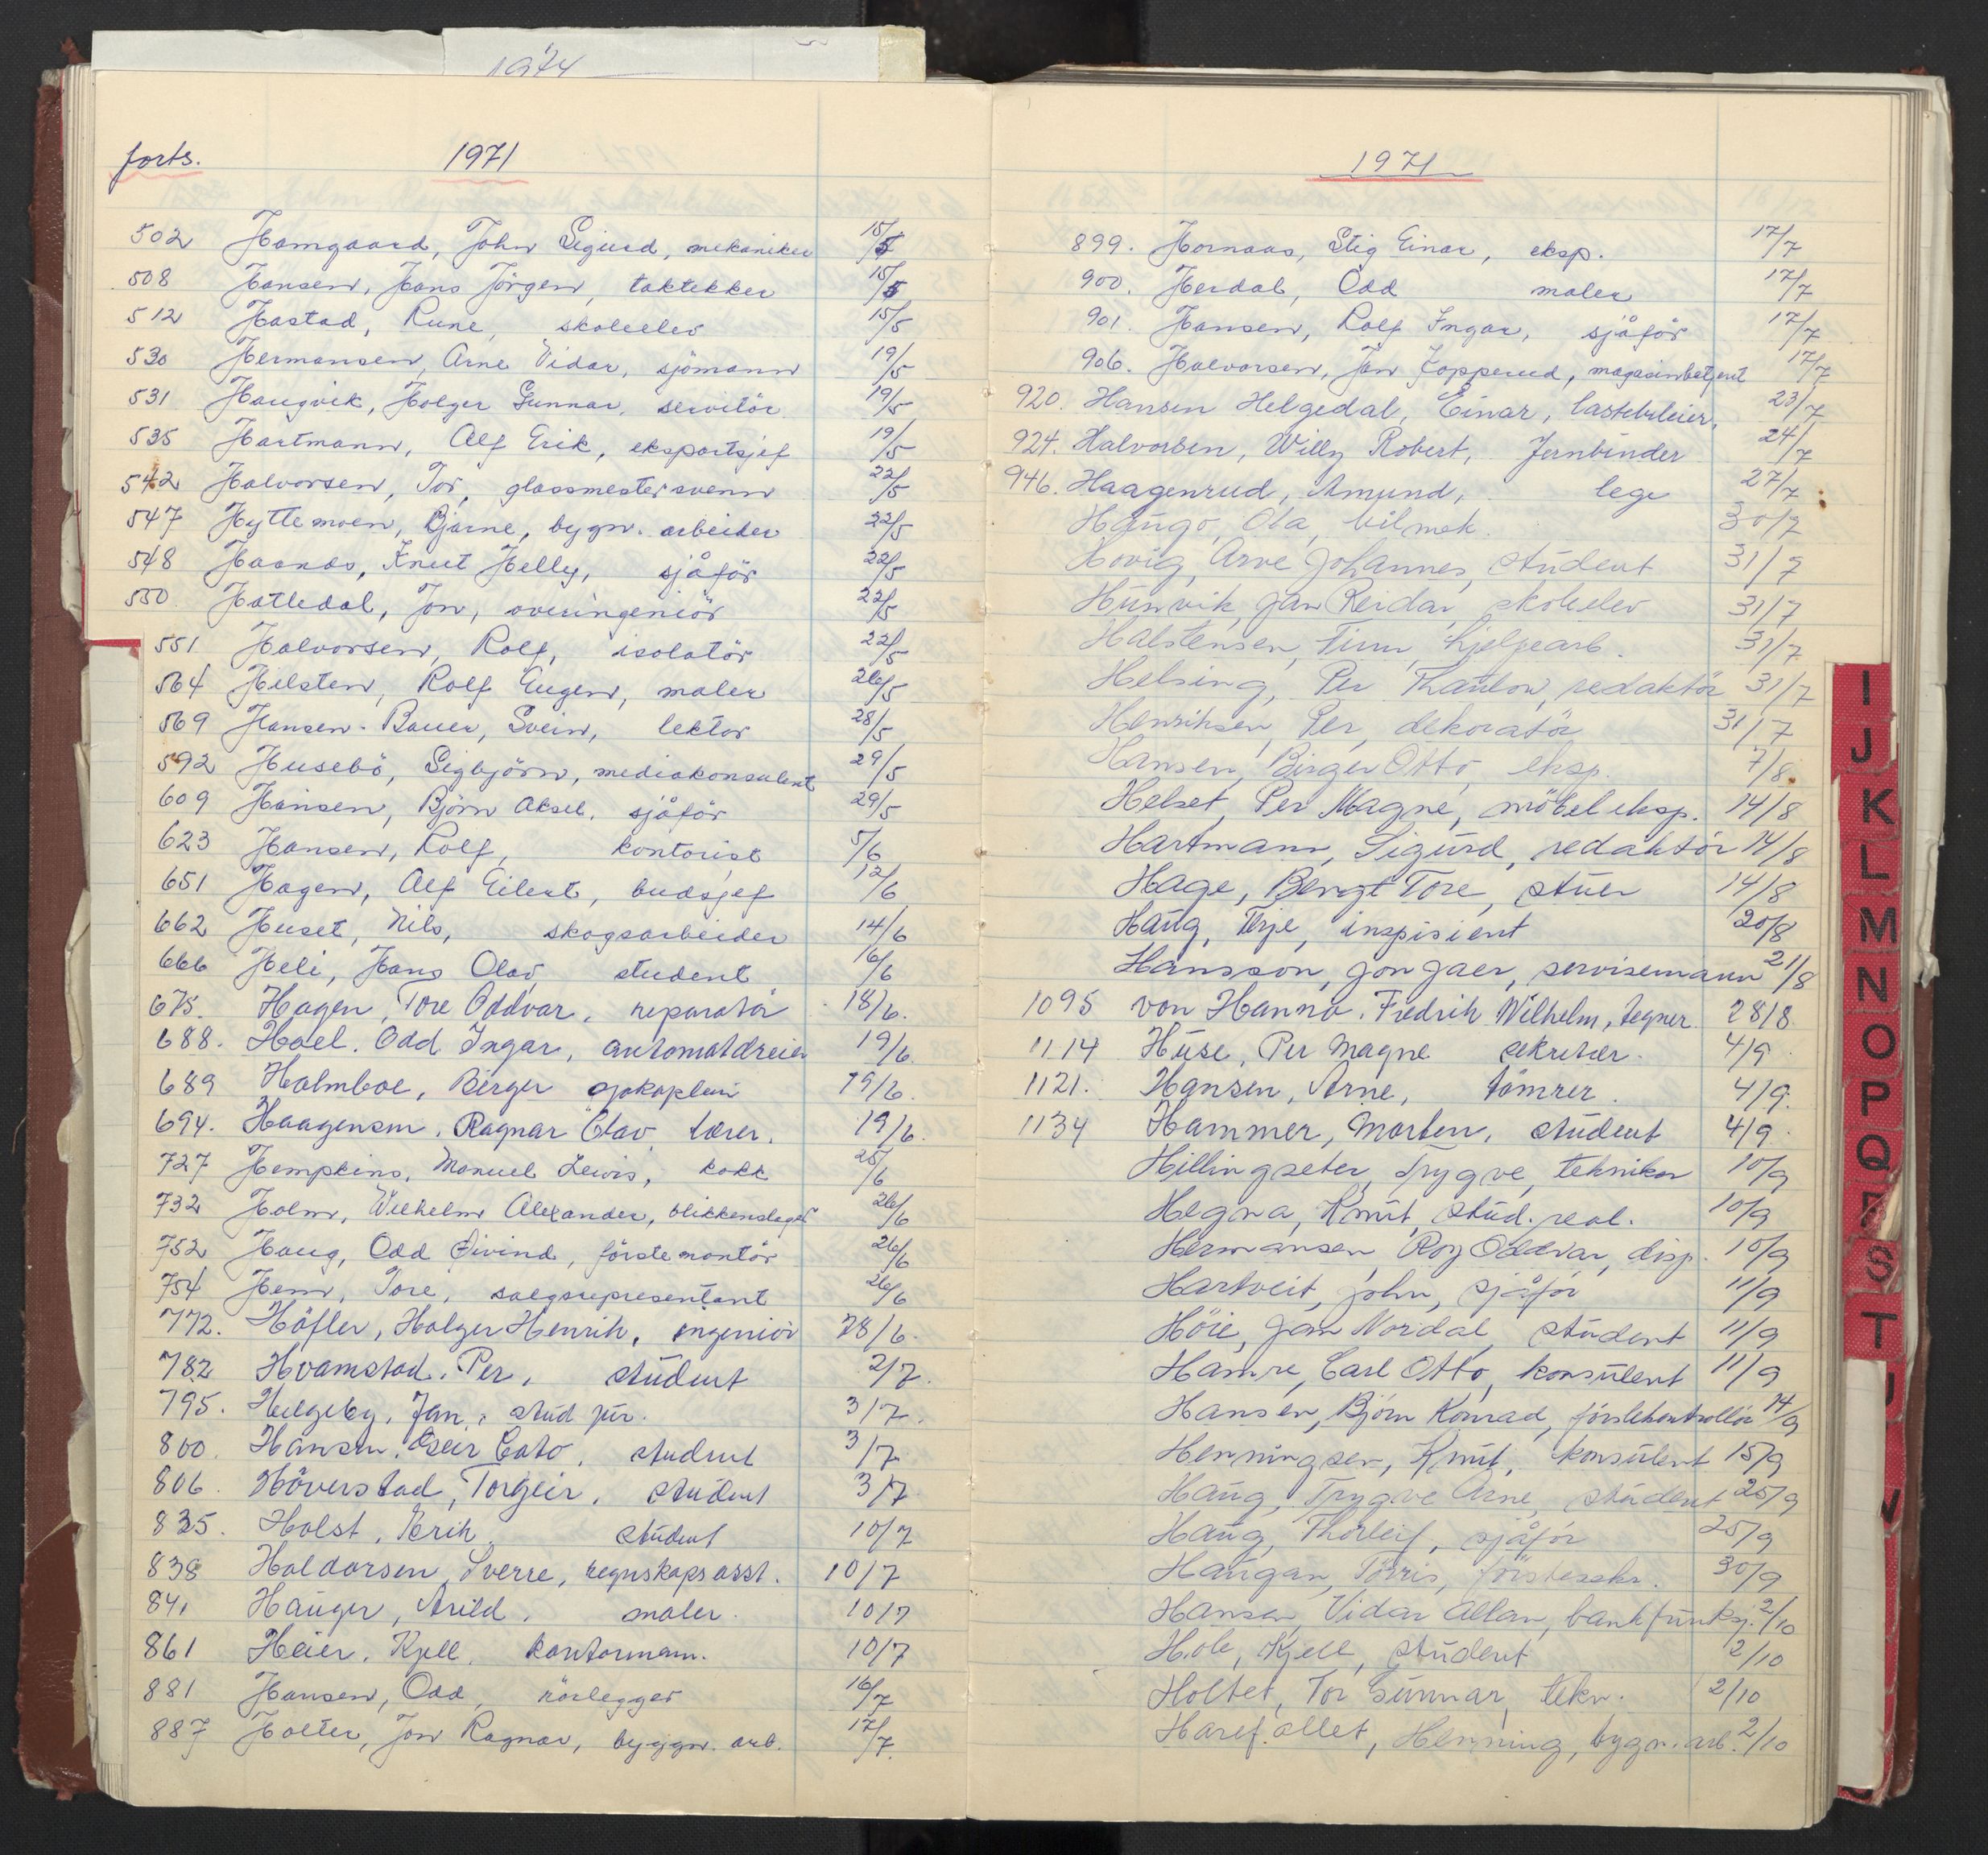 1974
forts. 1971
502 Hamgaard, John Sigurd, mekaniker 15/5
508 Hansen, Hans Jörgen, taktekker 15/5
512 Hastad, Rune, skoleelev 15/5
530 Hermansen, Arne Vidar, sjömann 19/5
531 Haugvik, Holger Gunnar, servitör 19/5
535 Hartmann, Alf Erik, eksportsjef 19/5
542 Halvorsen, Tor, glassmestersvenn 22/5
547 Hyttemoen, Bjarne, bygn. arbeider 22/5
548 Haanes, Knut Helly, sjåför 22/5
550 Hatledal, Jon, overingeniör 22/5
551 Halvorsen, Rolf, isolatör 22/5
564 Hilsten, Rolf Eugen, maler 26/5
569 Hansen-Bauer, Svein, lektor 28/5
592 Husebö, Sigbjörn, mediakonsulent 29/5
609 Hansen, Björn Aksel, sjåför 29/5
623 Hansen, Rolf, kontorist 5/6
651 Hagen, Alf Eilert, budsjef 12/6
662 Huset, Nils, skogsarbeider 14/6
666 Heli, Hans Olav, student 16/6
675. Hagen, Tore Oddvar, reparatör 18/6.
688. Hoel. Odd Ingar, automatdreier 19/6.
689 Holmboe, Birger sjökaptein 19/6.
694. Haagensen, Ragnar Olav, lærer. 19/6.
727 Hempkins, Manuel Lewis, kokk 25/6
732 Holm, Wilhelm Alexander, blikkenslager 26/6
752 Haug, Odd Øivind, förstemontör 26/6
754 Hem, Tore, salgsrepresentant 26/6
772. Höfler, Holger Henrik, ingeniör 28/6.
782 Hvamstad. Per, student 2/7.
795. Helgeby, Jan, stud jur. 3/7.
800. Hansen, Geir Cato, student 3/7
806. Höverstad, Torgeir, student 3/7
835. Holst, Erik, student 10/7
838 Haldorsen, Sverre, regnskapsasst. 10/7
841 Hauger, Arild, maler. 10/7
861 Heier, Kjell, kontormann. 10/7
881 Hansen, Odd, rörlegger 16/7
887 Holter, Jon Ragnar, byggn. arb. 17/7.
1971
899. Hornaas, Stig Einar, eksp. 17/7
900. Herdal, Odd maler 17/7
901. Hansen, Rolf Ingar, sjåför 17/7
906. Halvorsen, Jan Kopperud, magasinbetjent 17/7
920. Hansen Helgedal, Einar, lastebileier, 23/7
924. Halvorsen, Willy Robert, Jernbinder 24/7
946. Haagenrud, Amund, lege 27/7
Haugo, Ola, bilmek. 30/7
Hovig, Arve Johannes, student 31/7
Hunvik, Jan Reidar, skoleelev 31/7
Halstensen, Finn, hjelpearb. 31/7
Helsing, Per Thaulow, redaktör 31/7
Henriksen, Per, dekoratör 31/7
Hansen, Birger Otto, eksp. 7/8.
Helset, Per Magne, möbeleksp. 14/8
Hartmann, Sigurd, redaktör 14/8
Hage, Bengt Tore, stuer 14/8
Haug, Terje, inspisient 20/8
Hansson, Jon Jaer, servisemann 21/8
1095 von Hanno, Fredrik Wilhelm, tegner. 28/8
1114 Huse, Per Magne sekretær. 4/9
1121. Hansen, Arne, tömrer. 4/9.
1134 Hammer, Morten, student 4/9.
Hillingseter, Trygve, tekniker 10/9
Hegna, Knut, stud. real. 10/9
Hermansen, Roy Oddvar, disp. 10/9
Hartveit, John, sjåför 11/9
Höie, Jan Nordal, student 11/9
Hamre, Carl Otto, konsulent 11/9
Hansen, Björn Konrad, förstekontrollör 14/9
Henningsen, Knut, konsulent 15/9
Haug, Trygve Arne, student 25/9
Haug, Thorleif, sjåför 25/9
Haugan, Törris, förstesekr. 30/9
Hansen, Vidar Allan, bankfunksj. 2/10
Hole, Kjell, student 2/10
Holtet, Tor Gunnar, tekn. 2/10
Harefallet, Henning, bygn.arb. 2/10
I
J
K
L
M
N
O
P
Q
R
S
T